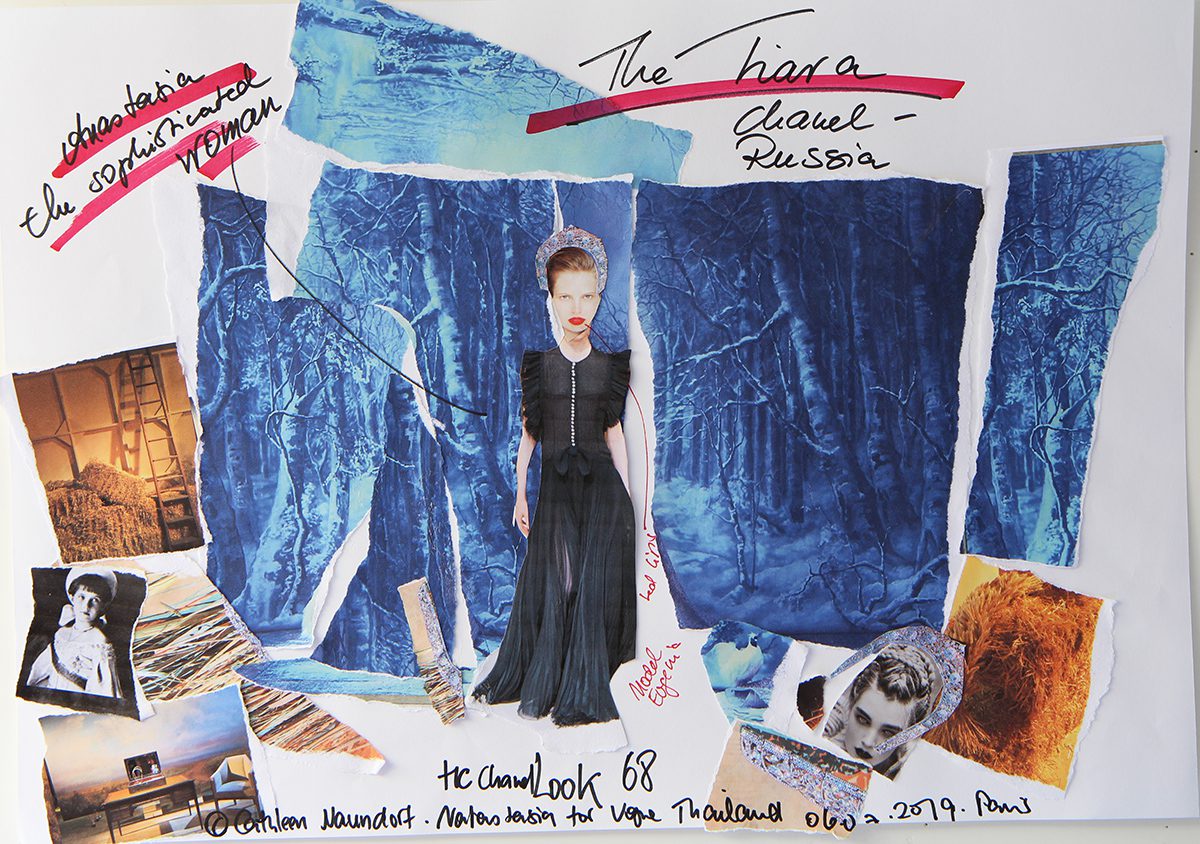 Anastasia
the sophisticated
WOMAN
The Tiara
Chanel -
Russia
Red lips
Model
Evgenia
HC Chanel LOOK 68
© Cathleen Naundorf. Natastasia for Vogue Thailand 2019. Paris